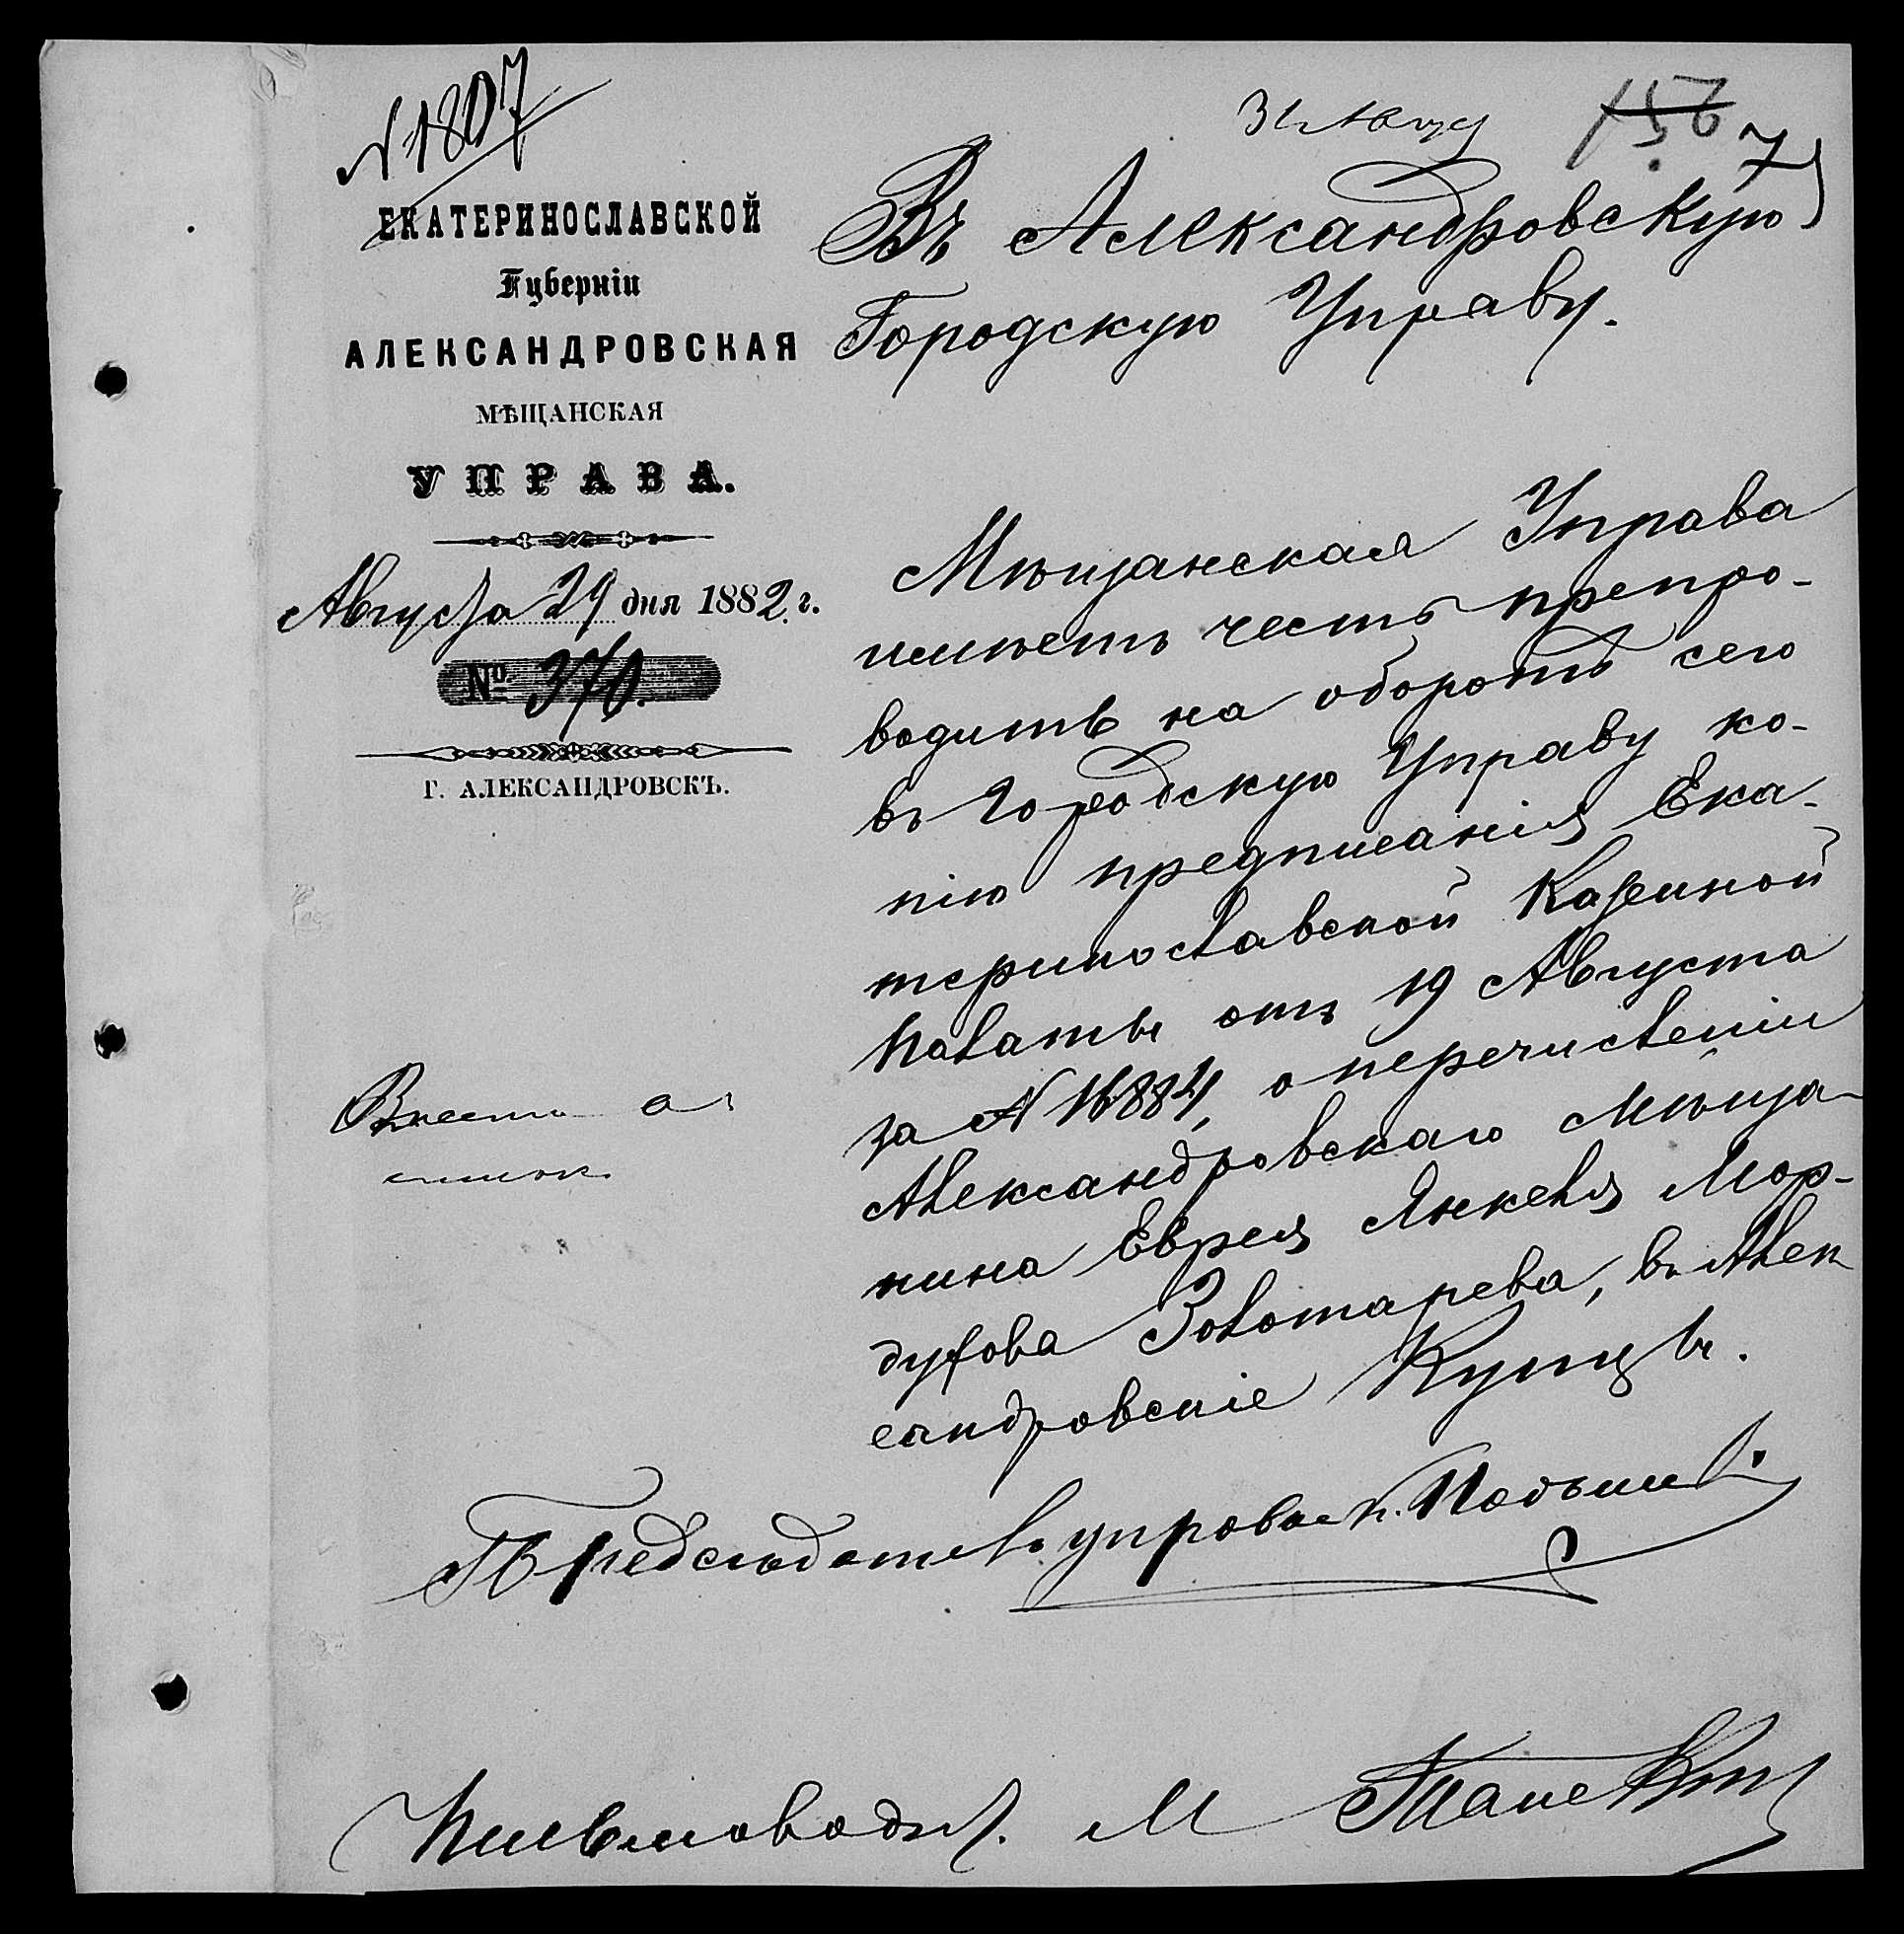 № 1807
31 Авгу
156
7
ЕКАТЕРИНОСЛАВСКОЙ
Губерніи
АЛЕКСАНДРОВСКАЯ
МѢЩАНСКАЯ
УПРАВА.
Августа 29 дня 1882 г.
№ 370.
Г. АЛЕКСАНДРОВСКЪ.
Въ Александровскую
Городскую Управу.
Мѣщанская Управа
имѣетъ честь препро-
водить на оборотѣ сего
въ Городскую Управу ко-
пію предписанія Ека-
теринославской Казенной
Палаты отъ 19 Августа
за № 16884, о перечисленіи
Александровскаго Мѣща-
нина Еврея Янкеля Мор-
духова Золотарева, въ Алек
сандровскіе Купцы.
Внести
списокъ
Предсѣдатель управы
Письмоводит. М